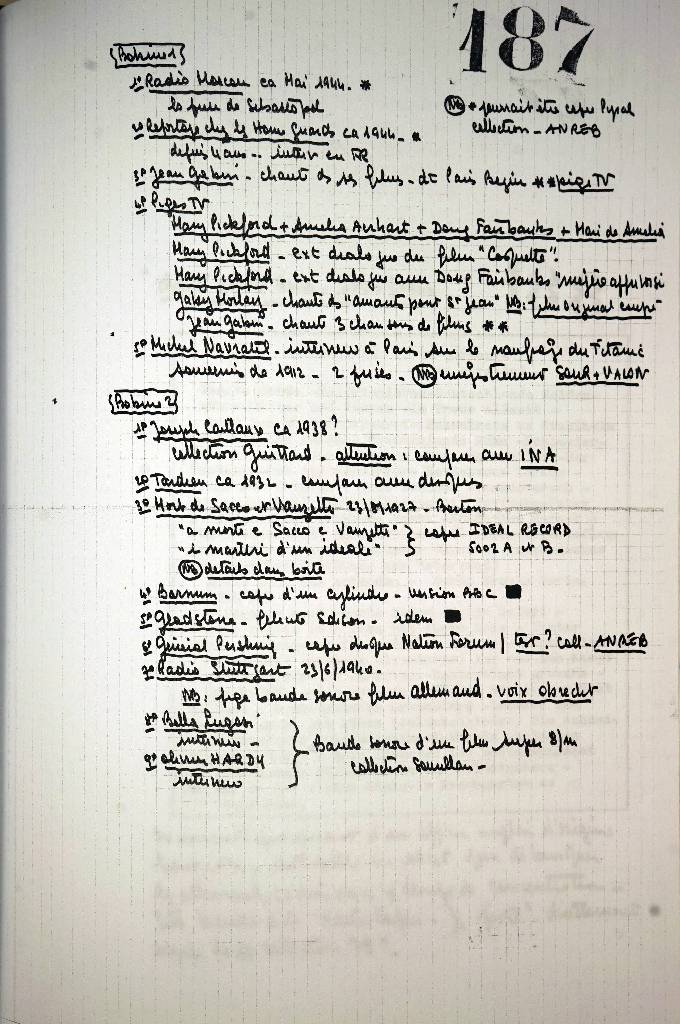 187
Bobine 1
1º Radio Moscou ca Mai 1944. *
la prise de Sébastopol
NB * pourrait être copie Pyral
collection - ANREB
2º Reportage chez les Home Guards ca 1944 - *
depuis 4 ans .. interv en FR
3º Jean Gabin - chante ds ses films - dt Paris Begin ** piges TV
4º Piges TV
Mary Pickford + Amelia Aerhart + Doug Fairbanks + Mari de Amelia
Mary Pickford - ext dialogue du film "Coquette".
Mary Pickford - ext dialogue avec Doug Fairbanks "mégère apprivoisé
Gaby Morlay - chante ds "amants pont St Jean" NB: film original coupé
Jean Gabin - chante 3 chansons de films **
5º Michel Navratil - interview à Paris sur le naufrage du Titanic
souvenirs de 1912 - 2 prises - NB enregistrement SOUR + VALON
Bobine 2
1º Joseph Caillaux ca 1938?
collection Guittard - attention : comparer avec INA
2º Tardieu ca 1932 - comparer avec disques
3º Mort de Sacco et Vanzetti 23/8/1927 - Boston
"a morte e Sacco e Vanzetti" } copie IDEAL RECORD
"i martiri d'un ideale" } 5002 A et B.
NB details dans boite
4º Barnum - copie d'un cylindre - version ABC
5º Gladstone - félicite Edison - idem
6º Général Pershing - copie disque Nation Forum / test? coll - ANREB
7º Radio Stuttgart 23/6/1940.
NB: pige bande sonore film allemand - voix obrecht
8º Bella Lugosi
interview -
9º Olivier HARDY
interview
} Bande sonore d'un film super 8/m
collection -